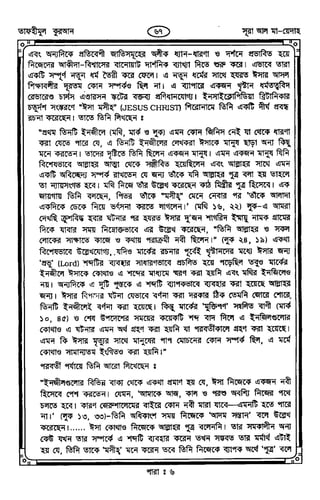 তাফহীমুল কুরআন
৬৭
সূরা আল মা-য়েদাহ
এবং অন্যদিকে প্রতিবেশী জাতিসমূহের অলীক ধ্যান-ধারণা ও দর্শনে প্রভাবিত হয়ে
নিজেদের আকীদা-বিশ্বাসের বানোয়াট দার্শনিক ব্যাখ্যা দিতে শুরু করে। এভাবে তারা
একটি সম্পূর্ণ নতুন ধর্ম তৈরী করে ফেলে। এ নতুন ধর্মের সাথে হযরত ঈসার আসল
শিক্ষাবলীর দূরতম কোন সম্পর্কও ছিল না। এ ব্যাপারে একজন খৃস্টান ধর্মতত্ত্ববিদ
রেভারেণ্ড চার্লস এণ্ডারসন স্কটের বক্তব্য প্রণিধানযোগ্য। ইনসাইক্লোপিডিয়া ব্রিটানিকার
চতুর্দশ সংস্করণে "ঈসা মসীহ" (JESUS CHRIST) শিরোনামে তিনি একটি দীর্ঘ প্রবন্ধ
রচনা করেছেন। তাতে তিনি লিখেছেন :
"প্রথম তিনটি ইনজীলে (মথি, মার্ক ও লুক) এমন কোন জিনিস নেই যা থেকে ধারণা
করা যেতে পারে যে, এ তিনটি ইনজীলের লেখকরা ঈসাকে মানুষ ছাড়া অন্য কিছু
মনে করতেন। তাদের দৃষ্টিতে তিনি ছিলেন একজন মানুষ। এমন একজন মানুষ যিনি
বিশেষভাবে আল্লাহর আত্মা থেকে সঞ্জীবিত হয়েছিলেন এবং আল্লাহর সাথে এমন
একটি অবিচ্ছেদ্য সম্পর্ক রাখতেন যে জন্য তাঁকে যদি আল্লাহর পুত্র বলা হয় তাহলে
তা ন্যায়সংগত হবে। মথি নিজে তাঁর উল্লেখ করেছেন কাঠ মিস্ত্রীর পুত্র হিসেবে। এক
জায়গায় তিনি বলছেন, পিতর তাঁকে "মসীহ" মেনে নেবার পর 'তাঁকে আলাদা
একদিকে ডেকে নিয়ে ভর্ৎসনা করতে লাগলেন।' (মথি ১৬, ২২) লুক-এ আমরা
দেখছি ক্রুশবিদ্ধ হবার ঘটনার পর হযরত ঈসার দু'জন শাগরিদ ইম্মায়ু নামক গ্রামের
দিকে যাবার সময় নিম্নোক্তভাবে এর উল্লেখ করেছেন, "তিনি আল্লাহর ও সকল
লোকের সাক্ষাতে কাজে ও কথায় পরাক্রমী নবী ছিলেন।" (লুক ২৪, ১৯) একথা
বিশেষভাবে উল্লেখযোগ্য, যদিও মার্কের রচনার পূর্বেই খৃস্টানদের মধ্যে ঈসার জন্য
'প্রভু' (Lord) শব্দটির ব্যবহার সাধারণভাবে প্রচলিত হয়ে পড়েছিল তবুও মার্কের
ইনজীলে ঈসাকে কোথাও এ শব্দের মাধ্যমে স্মরণ করা হয়নি এবং মথির ইনজীলেও
নয়। অন্যদিকে এ দু'টি পুস্তকে এ শব্দটি ব্যাপকভাবে ব্যবহার করা হয়েছে আল্লাহর
জন্য। ঈসার বিপদের ঘটনা যেভাবে বর্ণনা করা দরকার ঠিক তেমনি জোরে শোরে
তিনটি ইনজীলেই বর্ণনা করা হয়েছে। কিন্তু মার্কের 'মুক্তিপণ' সম্বলিত বাণী (মার্ক
১০, ৪৫) ও শেষ উপদেশের সময়ের কয়েকটি শব্দ বাদ দিলে এ ইনজিলগুলোর
কোথাও এ ঘটনার এমন অর্থ গ্রহণ করা হয়নি যা পরবর্তীকালে গ্রহণ করা হয়েছে।
এমন কি ঈসার মৃত্যুর সাথে মানুষের পাপ মোচনের কোন সম্পর্ক ছিল, এ মর্মে
কোথাও সামান্যতম ইংগিতও করা হয়নি।"
পরবর্তী পর্যায়ে তিনি আরো লিখেছেন :
"ইনজীলগুলোর বিভিন্ন বাক্য থেকে একথা প্রমাণ হয় যে, ঈসা নিজেকে একজন নবী
হিসেবে পেশ করতেন। যেমন, 'আমাকে আজ, কাল ও পরশু অবশ্যি নিজের পথে
চলতে হবে। কারণ জেরুশালেমের বাইরে কোন নবী মারা যাবে—এমনটি হতে পারে
না।' (লুক ১৩, ৩৩)–তিনি অধিকাংশ সময় নিজেকে 'আদম সন্তান' বলে উল্লেখ
করেছেন।...... ঈসা কোথাও নিজেকে আল্লাহর পুত্র বলেননি। তাঁর সমকালীন অন্য
কেউ যখন তাঁর সম্পর্কে এ শব্দটি ব্যবহার করেন তখন সম্ভবত তার মর্মার্থ এটাই
হয় যে, তিনি তাকে "মসীহ" মনে করেন তবে তিনি নিজেকে ব্যাপক অর্থে 'পুত্র' বলে
পারা : ৬